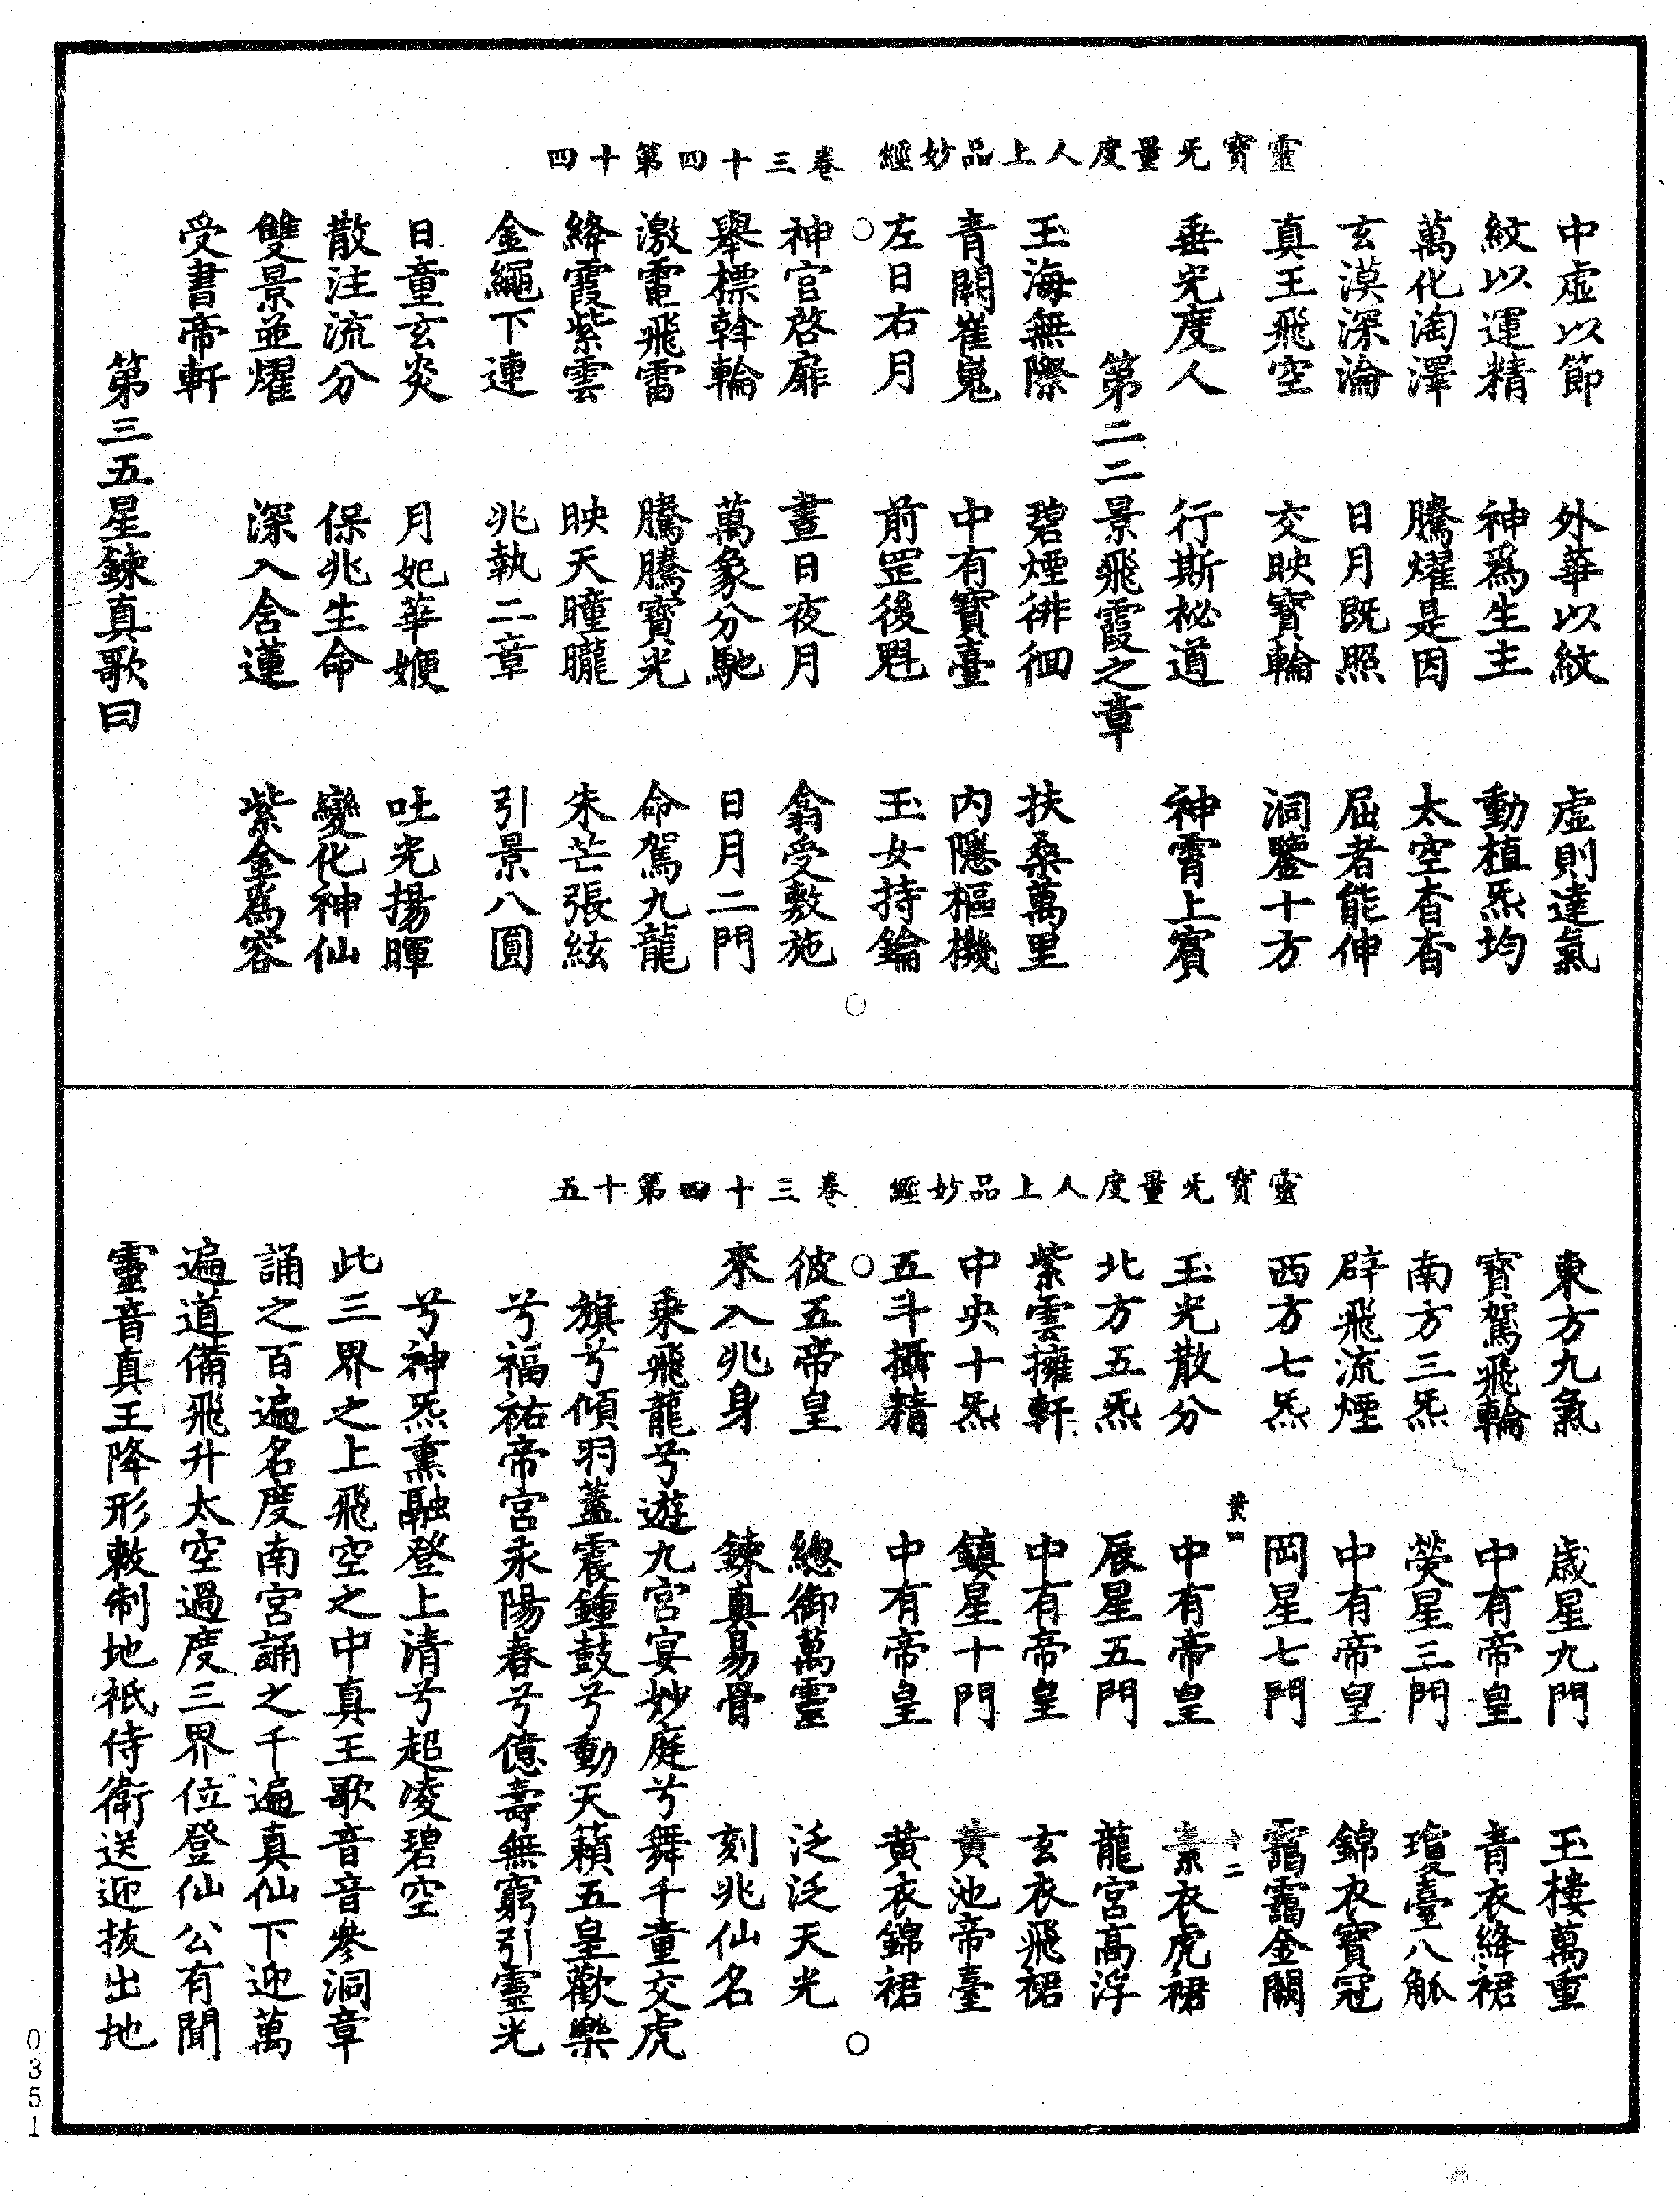 靈寶旡量度人上品妙經　卷三十四第十四
中虛以節　外華以紋　虛則達氣
紋以運精　神爲生主　動植炁均
萬化淘澤　騰燿是因　太空杳杳
玄漠深淪　日月既照　屈者能伸
真王飛空　交映寶輪　洞鑒十方
垂光度人　行斯祕道　神霄上賓
第二二景飛霞之章
玉海無際　碧煙徘徊　扶桑萬里
青闕崔嵬　中有寶臺　内隱樞機
左日右月　前罡後魁　玉女持鑰
神官啓扉　晝日夜月　翕受敷施
舉標斡輪　萬象分馳　日月二門
激電飛雷　騰騰寶光　命駕九龍
絳霞紫雲　映天曈曨　朱芒張絃
金繩下連　兆執二章　引景八圓
日童玄炎　月妃華㛹　吐光揚暉
散注流分　保兆生命　變化神仙
雙景並燿　深入舍蓮　紫金爲容
受書帝軒
第三五星鍊真歌曰
靈寶旡量度人上品妙經　卷三十四第十五
東方九氣　歲星九門　玉樓萬重
寶駕飛輪　中有帝皇　青衣絳裙
南方三炁　熒星三門　瓊臺八觚
辟飛流煙　中有帝皇　錦衣寶冠
西方七炁　罡星七門　靄靄金闕
黄四　十二
玉光散分　中有帝皇　素衣虎裙
北方五炁　辰星五門　龍宮高浮
紫雲擁軒　中有帝皇　玄衣飛裙
中央十炁　鎮星十門　黄池帝臺
五斗攝精　中有帝皇　黄衣錦裙
彼五帝皇　總御萬靈　泛泛天光
來入兆身　鍊真易骨　刻兆仙名
乘飛龍兮遊九宮宴妙庭兮舞千童交虎
旗兮傾羽蓋震鍾鼓兮動天籟五皇歡樂
兮福祐帝宮永陽春兮億壽無窮引靈光
兮神炁熏融登上清兮超凌碧空
此三界之上飛空之中真王歌音音參洞章
誦之百遍名度南宮誦之千遍真仙下迎萬
遍道備飛升太空過度三界位登仙公有聞
靈音真王降形敕制地祇侍衛送迎拔出地
0351